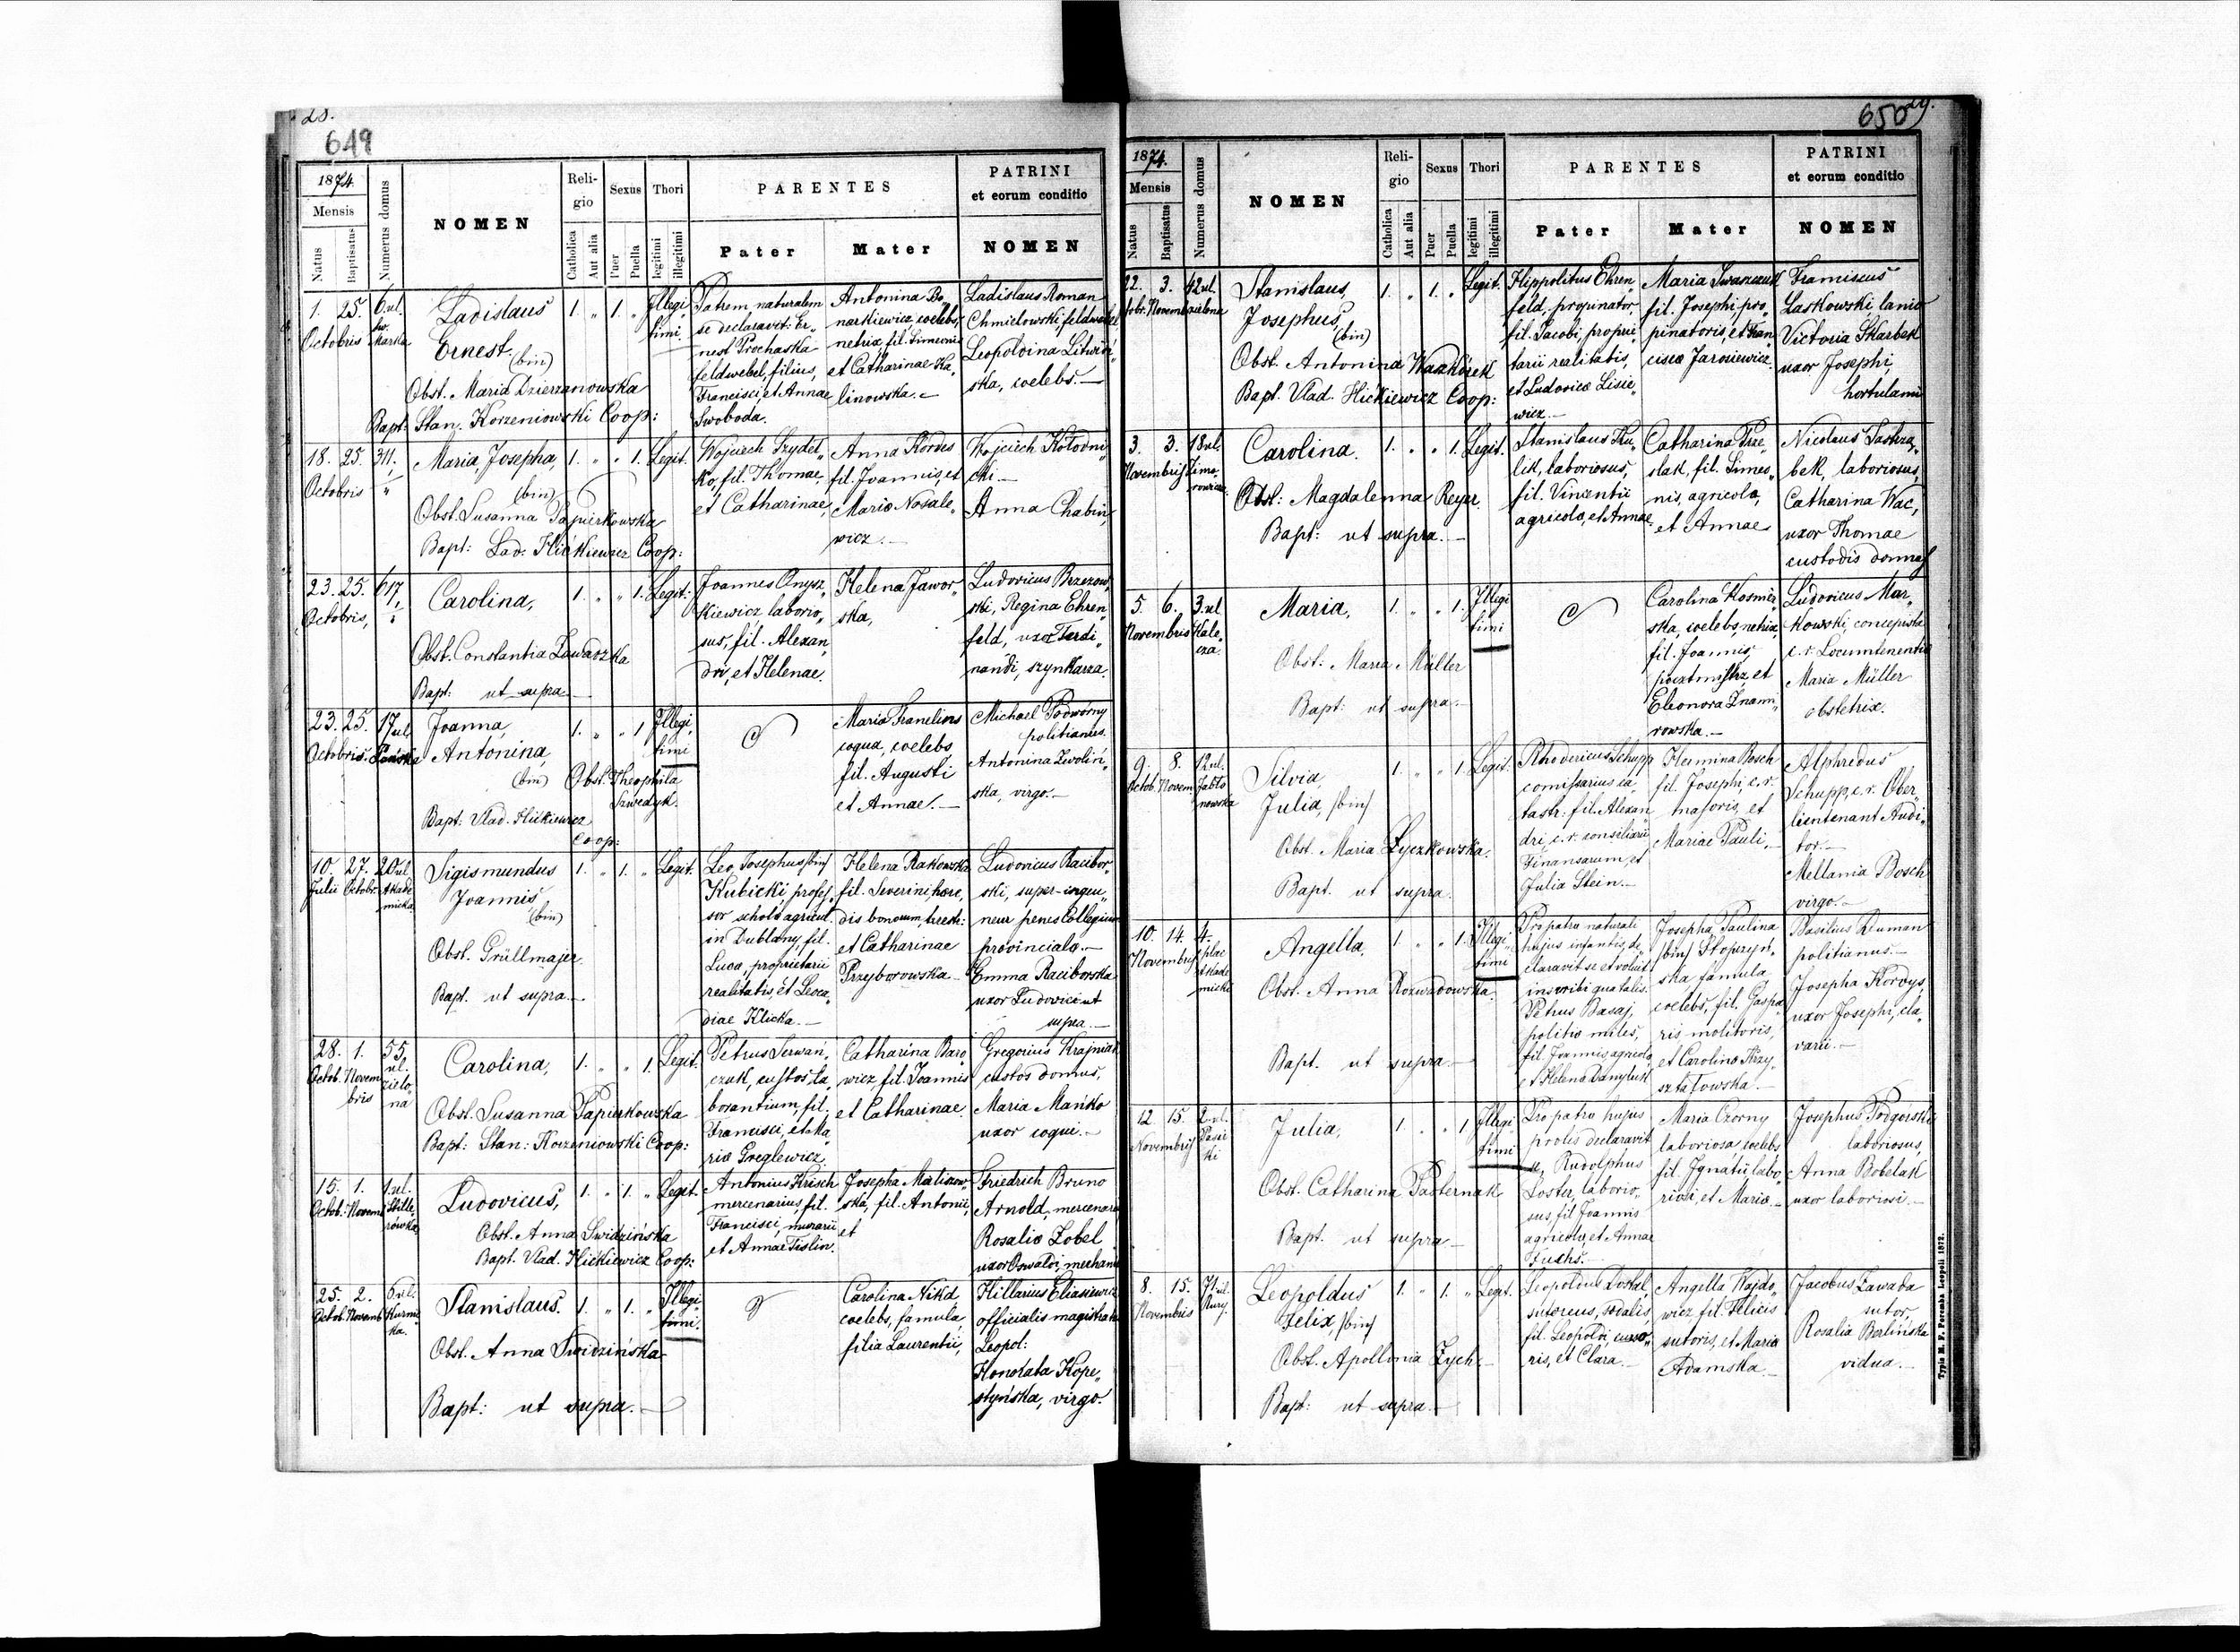 649
1874.
Mensis
Natus
Baptisatus
Numerus domus
NOMEN
Reli-
gio
Catholica
Aut alia
Sexus
Puer
Puella
Thori
legitimi
illegitimi
PARENTES
Pater
Mater
PATRINI
et eorum conditio
NOMEN
1. 25. 6 ul.
Octobris Sw. Marka
Ladislaus
Ernest (bin)
Obst. Maria Dzierzanowska
Bapt: Stan. Korzeniowski Coop:
1. „ 1. „ Illegi
timi.
Patrem naturalem
se declaravit: Er„
nest Prochaska
feldwebel, filius,
Francisci, et Annae
Swoboda.
Antonina Bo„
narkiewicz, coelebs,
netrix, fil. Simeonis
et Catharinae Ka„
linowska.
Ladislaus Roman
Chmielowski, feldwebel
Leopoldina Litwiń„
ska, coelebs.
18. 25. 311.
Octobris „
Maria, Josepha,
(bin)
Obst. Susanna Papierkowska
Bapt: Lad: Hićkiewicz Coop:
1. „ „ 1. Legit.
Wojciech Szydeł„
ko, fil. Thomae,
et Catharinae,
Anna Kordes
fil. Joannis, et
Maria Nosale„
wicz.
Wojciech Kołodni„
cki
Anna Chabin,
23. 25. 617,
Octobris,
Carolina,
Obst. Constantia Zawadzka
Bapt: ut supra
1. „ „ 1. Legit:
Joannes Onysz„
kiewicz, laborio„
sus, fil. Alexan„
dri, et Helenae.
Helena Jawor„
ska,
Ludovicus Brzezow„
ski, Regina Ehren„
feld, uxor Ferdi„
nandi, szynkarza.
23. 25. 17 ul.
Octobris. Pańska
Joanna,
Antonina,
(bin) Obst. Theophila
Szwedyk.
Bapt: Vlad. Hićkiewicz
Coop:
1. „ „ 1 Illegi
timi
Maria Franelins
coqua, coelebs
fil. Augusti
et Annae.
Michael Podworny
politianus.
Antonina Zwoliń„
ska, virgo.
10. 27. 20 ul.
Julii Octobr. Akade
micka
Sigismundus
Joannis
(bin)
Obst. Grüllmajer
Bapt. ut supra
1. „ 1. „ Legit.
Leo, Josephus (bin)
Kubicki, profes„
sor schola agricul.
in Dublany, fil.
Luca, proprietarii
realitatis, et Leoca„
diae Klicka.
Helena Rakowska
fil. Severini, haere„
dis bonorum,
et Catharinae
Przyborowska
Ludovicus Racibor„
ski, super-ingeu„
neur penes Collegium
provinciale.
Emma Raciborska
uxor Ludovici ut
supra.
28. 1. 55,
Octob. Novem ul.
bris zielo„
na
Carolina,
Obst. Susanna Papierkowska
Bapt: Stan: Korzeniowski Coop:
1. „ „ 1. Legit.
Petrus Serwań„
czuk, custos la„
borantium, fil.
Francisci, et Ma„
ria Greglewicz
Catharina Baro„
wicz, fil. Joannis
et Catharinae
Gregorius Krajniak
custos domus,
Maria Mańko
uxor coqui.
15. 1. 1 ul.
Octob. Novem.
Ludovicus,
Obst. Anna Swidzińska
Bapt. Vlad. Hićkiewicz Coop:
1. „ 1. „ Legit.
Antonius Krisch
mercenarius, fil.
Francisci, murarii
et Annae Tislin.
Josepha Malinow„
ska, fil. Antonii,
et
Friedrich Bruno
Arnold, mercenar
Rosalia Zobel
uxor Oswaldi, mechani
25. 2. 6 ul.
Octob. Novemb. Kurni
ka.
Stanislaus.
Obst. Anna Swidzińska
Bapt: ut supra.
1. „ 1. „ Illegi
timi.
Carolina Nikd
coelebs, famula,
filia Laurentii,
Hillarius Eliasiewicz
officialis magistratus
Leopol:
Honorata Kope„
styńska, virgo.
650
29.
1874.
Mensis
Natus
Baptisatus
Numerus domus
NOMEN
Reli-
gio
Catholica
Aut alia
Sexus
Puer
Puella
Thori
legitimi
illegitimi
PARENTES
Pater
Mater
PATRINI
et eorum conditio
NOMEN
22. 3. 42 ul.
Octobr. Novemb. zielona
Stanislaus,
Josephus,
(bin)
Obst. Antonina
Bapt. Vlad. Hićkiewicz Coop:
1. „ 1. „ Legit.
Hippolitus Ehren„
feld, propinator,
fil. Jacobi, proprie
tarii realitatis,
et Ludovica Lisie„
wicz.
Maria Iwanczuk
fil. Josephi, pro„
pinatoris, et Fran„
cisca Jarosiewicz.
Franciscus
Laskowski, lanio
Victoria Skarbek
uxor Josephi,
hortulani
3. 3. 18 ul.
Novembris Zimo„
rowicza
Carolina.
Obst: Magdalenna Reyer.
Bapt: ut supra.
1. „ „ 1. Legit.
Stanislaus Ku„
lik, laboriosus,
fil. Vincentii
agricola, et Annae.
Catharina Prze„
slak, fil. Simeo„
nis, agricola,
et Annae
Nicolaus Pastrza„
bek, laboriosus,
Catharina Wac,
uxor Thomae
custodis domus
5. 6. 3. ul
Novembris Kale„
cza.
Maria,
Obst: Maria Müller
Bapt: ut supra.
1. „ „ 1. Illegi
timi
Carolina Kosmir„
ska, coelebs, netrix,
fil. Joannis,
pocztmistrz, et
Eleonora Znami„
rowska.
Ludovicus Mar„
kowski, concepista
c. r. Locumtenentia
Maria Müller
obstetrix.
9. 8. 12 ul.
Octob. Novem. Jabło
nowska
Silvia,
Julia, (bin)
Obst. Maria Łyczkowska.
Bapt. ut supra
1. „ „ 1 Legit:
Rhodericus Schupp
comissarius ca
tastr: fil. Alexan
dri, c. r. consiliarii
Finansarum, et
Julia Stein.
Hermina Bosch
fil. Josephi, c. r.
majoris, et
Mariae Pauli,
Alphredus
Schupp, c. r. Ober„
lieutenant Audi„
tor.
Mellania Bosch
virgo.
10. 14. 4.
Novembris plac
Akade
micki
Angella,
Obst. Anna Rozwadowska.
Bapt. ut supra
1. „ „ 1. Illegi„
timi
Pro patre naturali
hujus infantis, de„
claravit se et voluit
inscribi qua talis.
Petrus Basaj,
politia miles,
fil. Joannis, agricola
et Helena Danyluk
Josepha, Paulina
(bin) Stopczyń„
ska famula,
coelebs, fil. Gaspa„
ris molitoris,
et Carolina Krzy„
sztatowska.
Basilius Ruman
politianus.
Josepha Kordys,
uxor Josephi, cla„
varii.
12 15. 2 ul.
Novembris Pasie
ki
Julia,
Obst. Catharina Pasternak
Bapt. ut supra
1. „ „ 1 Illegi
timi
Pro patre hujus
prolis declaravit
se, Rudolphus
Loster, laborio„
sus, fil. Joannis
agricola, et Annae
Fuchs.
Maria Czorny
laboriosa, coelebs
fil. Ignatii, labo„
riosi, et Maria
Josephus Podgórski
laboriosus,
Anna Bobelak
uxor laboriosi.
8. 15. 71 ul.
Novembris
Leopoldus
Felix, (bin)
Obst. Apollonia Zych.
Bapt: ut supra
1. „ 1. „ Legit.
Leopoldus Doskal,
sutoreus, sodalis,
fil. Leopoldi, curso„
ris, et Clara.
Angella Wajdo„
wicz, fil. Felicis
sutoris, et Maria
Adamska.
Jacobus Zawada
sutor,
Rosalia Berlińska
vidua.
Typis M. F. Poremba Leopoli 1872.